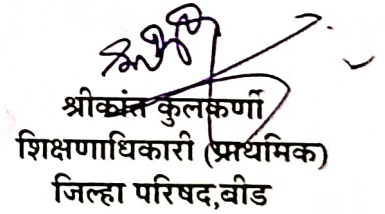 श्रीकांत कुलकर्णी
शिक्षणाधिकारी (प्राथमिक)
जिल्हा परिषद,बीड